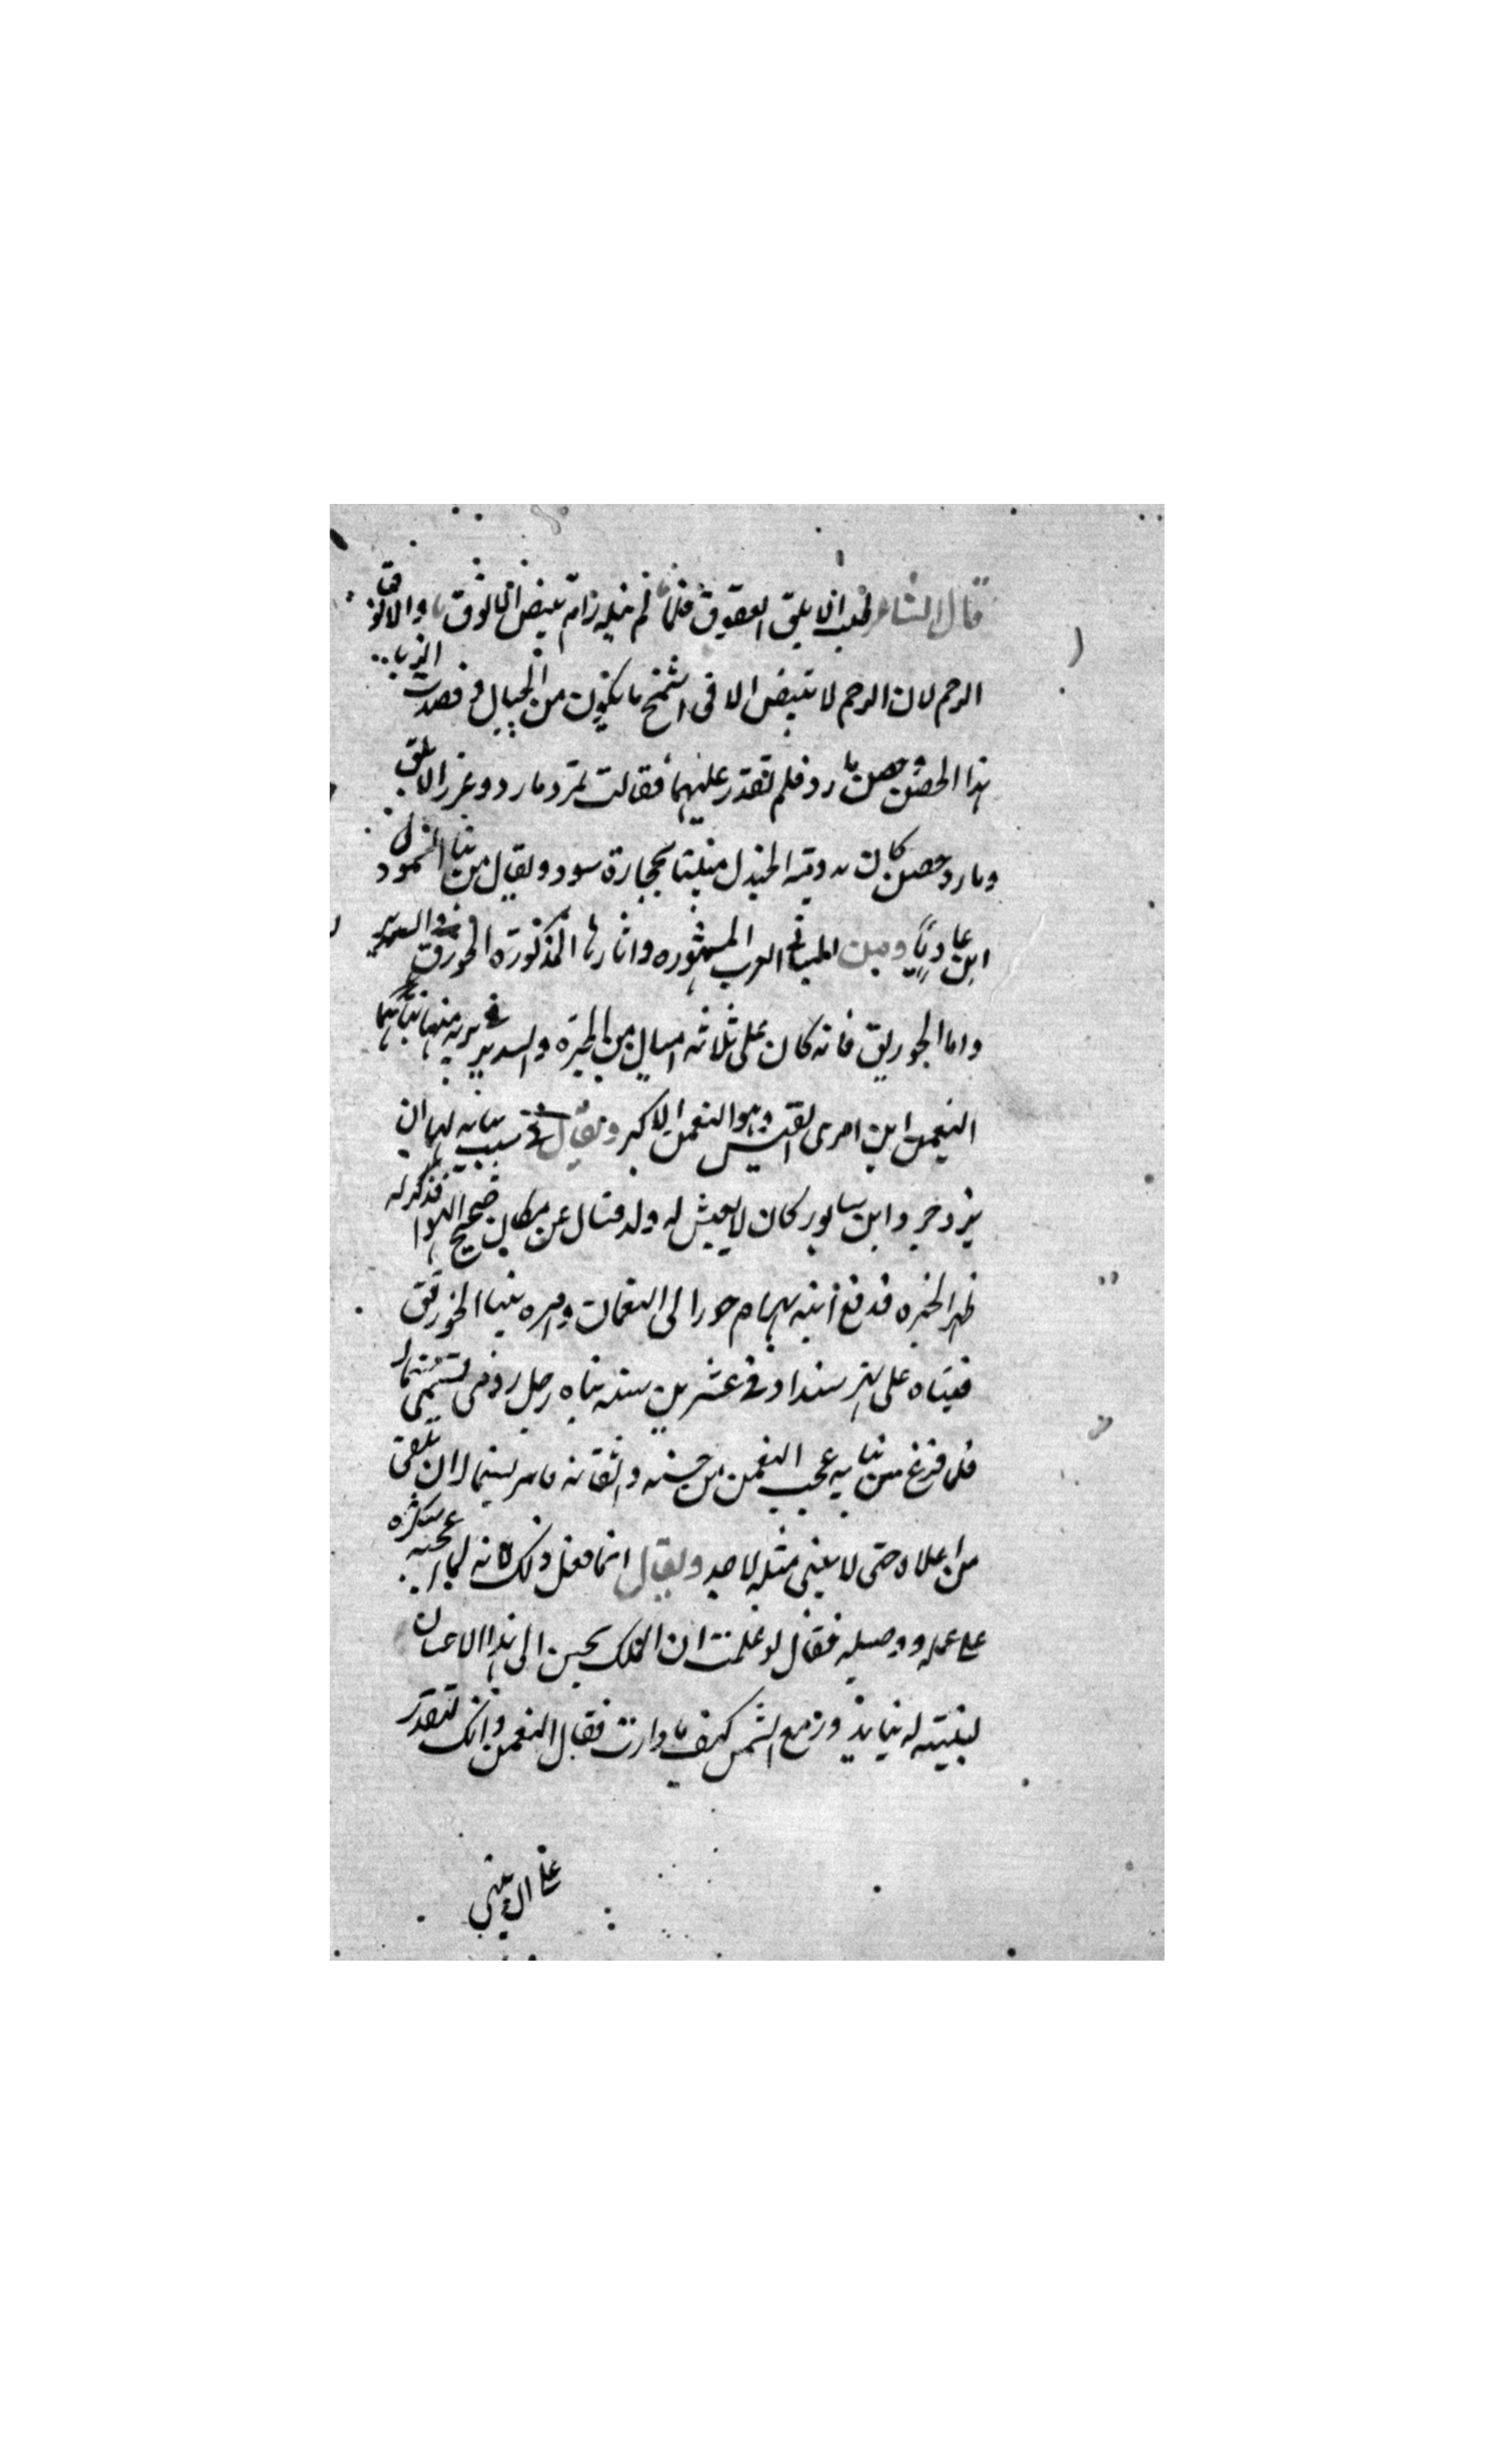 قال الشاعر طلب الابلق العقوق فلما لم ينله رام بيض الانوق والانوق
الرخم لان الرخم لا تبيض الا فى اشمخ ما يكون من الجبال وقصدت الزبا
هذا الحصن وحصن مارد فلم تقدر عليهما فقالت تمرد مارد وعز الابلق
ومارد حصن كان بدومة الجندل مبنيا بحجارة سود ويقال من بنا السمول
ابن عاديا ومن المبانى العرب المشهوره واثارها المذكورة الخورنق والسدير
واما الخورنق فانه كان على ثلاثه اميال من الحيرة والسدير فى برية منها بناهما
النعمن ابن امرى القيس وهو النعمن الاكبر ويقال فى سبب بنائه لهما ان
يزدجرد ابن سابور كان لا يعيش له ولد فسال عن مكان صحيح الهوا فذكر له
ظهر الحيره فدفع ابنه بهرام جور الى النعمان وامره ببنا الخورنق
فبناه على نهر سنداد فى عشرين سنه بناه رجل رومى يسمى سنمار
فلما فرغ من بنايه عجب النعمن من حسنه واتقانه فامر بسنمار ان يلقى
من اعلاه حتى لا يبنى مثله لاحد ويقال انما فعل ذلك لانه لما اعجبه شكره
على عمله ووصله فقال لو علمت ان الملك يحسن الى هذا الاحسان
لبنيته له بنا يدور مع الشمس كيف ما دارت فقال النعمن وانك لتقدر
على ان تبنى